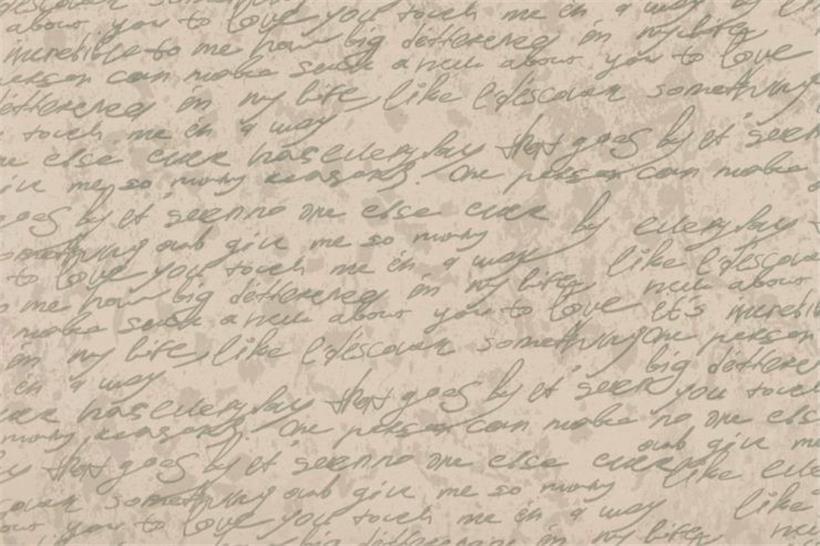 about you to love you touch me in a way
incredible to me how big difference in my life
person can make such a new about you to love
difference in my life, like I discover something
touch me in a way
one else ever has every day that goes by it seem
give me so many reasons. One person can make
goes by it seem no one else ever by every day
something and give me so many
to love you touch me in a way like I discover
me how big difference in my life new about
make such a new about you to love it's incredible
in my life, like I discover something One person
in a way big difference
ever has every day that goes by it seem you touch
many reasons. One person can make no one else
that goes by it seem no one else ever and give me
discover something and give me so many like
about you to love you touch me in a way like
big difference in my life